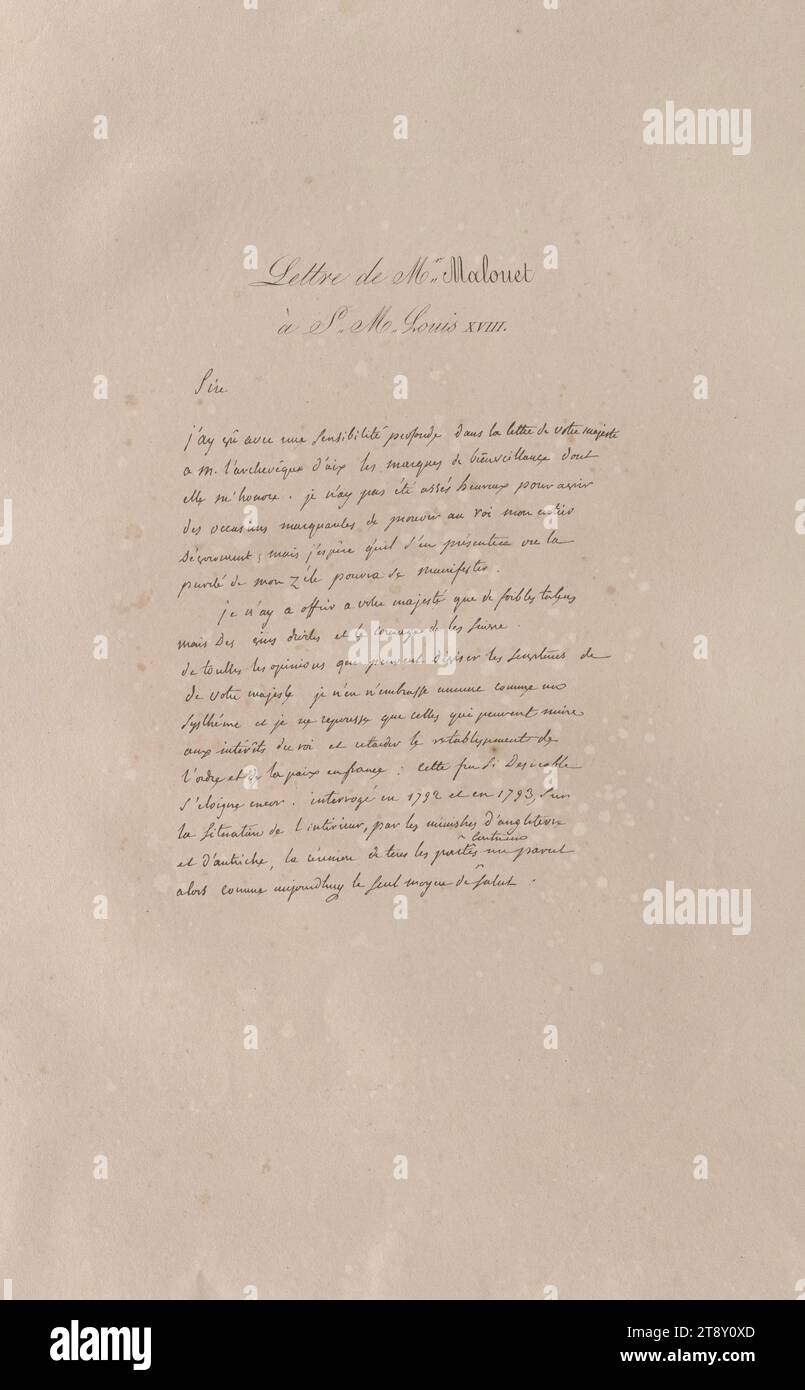 Lettre de Mr. Malouet
à S. M. Louis XVIII.
Sire
j'ay vû avec une sensibilité profonde dans la lettre de votre majesté
a m. l'archevêque d'aix les marques de bienveillance dont
elle m'honore. je n'ay pas été assés heureux pour avoir
des occasions marquantes de prouver au roi mon entier
Dévouement; mais j'espère qu'il s'en présentera ou la
pureté de mon zèle pourra se manifester.
je n'ay a offrir a votre majesté que de foibles talens
mais Des vues droites et le courage de les suivre.
de touttes les opinions qui peuvent diviser les serviteurs de
de votre majesté je n'en n'embrasse aucune comme un
systhéme et je ne repousse que celles qui peuvent nuire
aux intérêts du roi et retarder le rétablissement de
l'ordre et de la paix en france: cette fin si Desirable
s'eloigne encor. interrogé en 1792 et en 1793, sur
la situation de l'intérieur, par les ministres d'angleterre
et d'autriche, la réunion de tous les partis me parut
alors comme aujourdhuy le seul moyen de salut.
alamy
alamy
alamy
Image ID: 2T8Y0XD
www.alamy.com